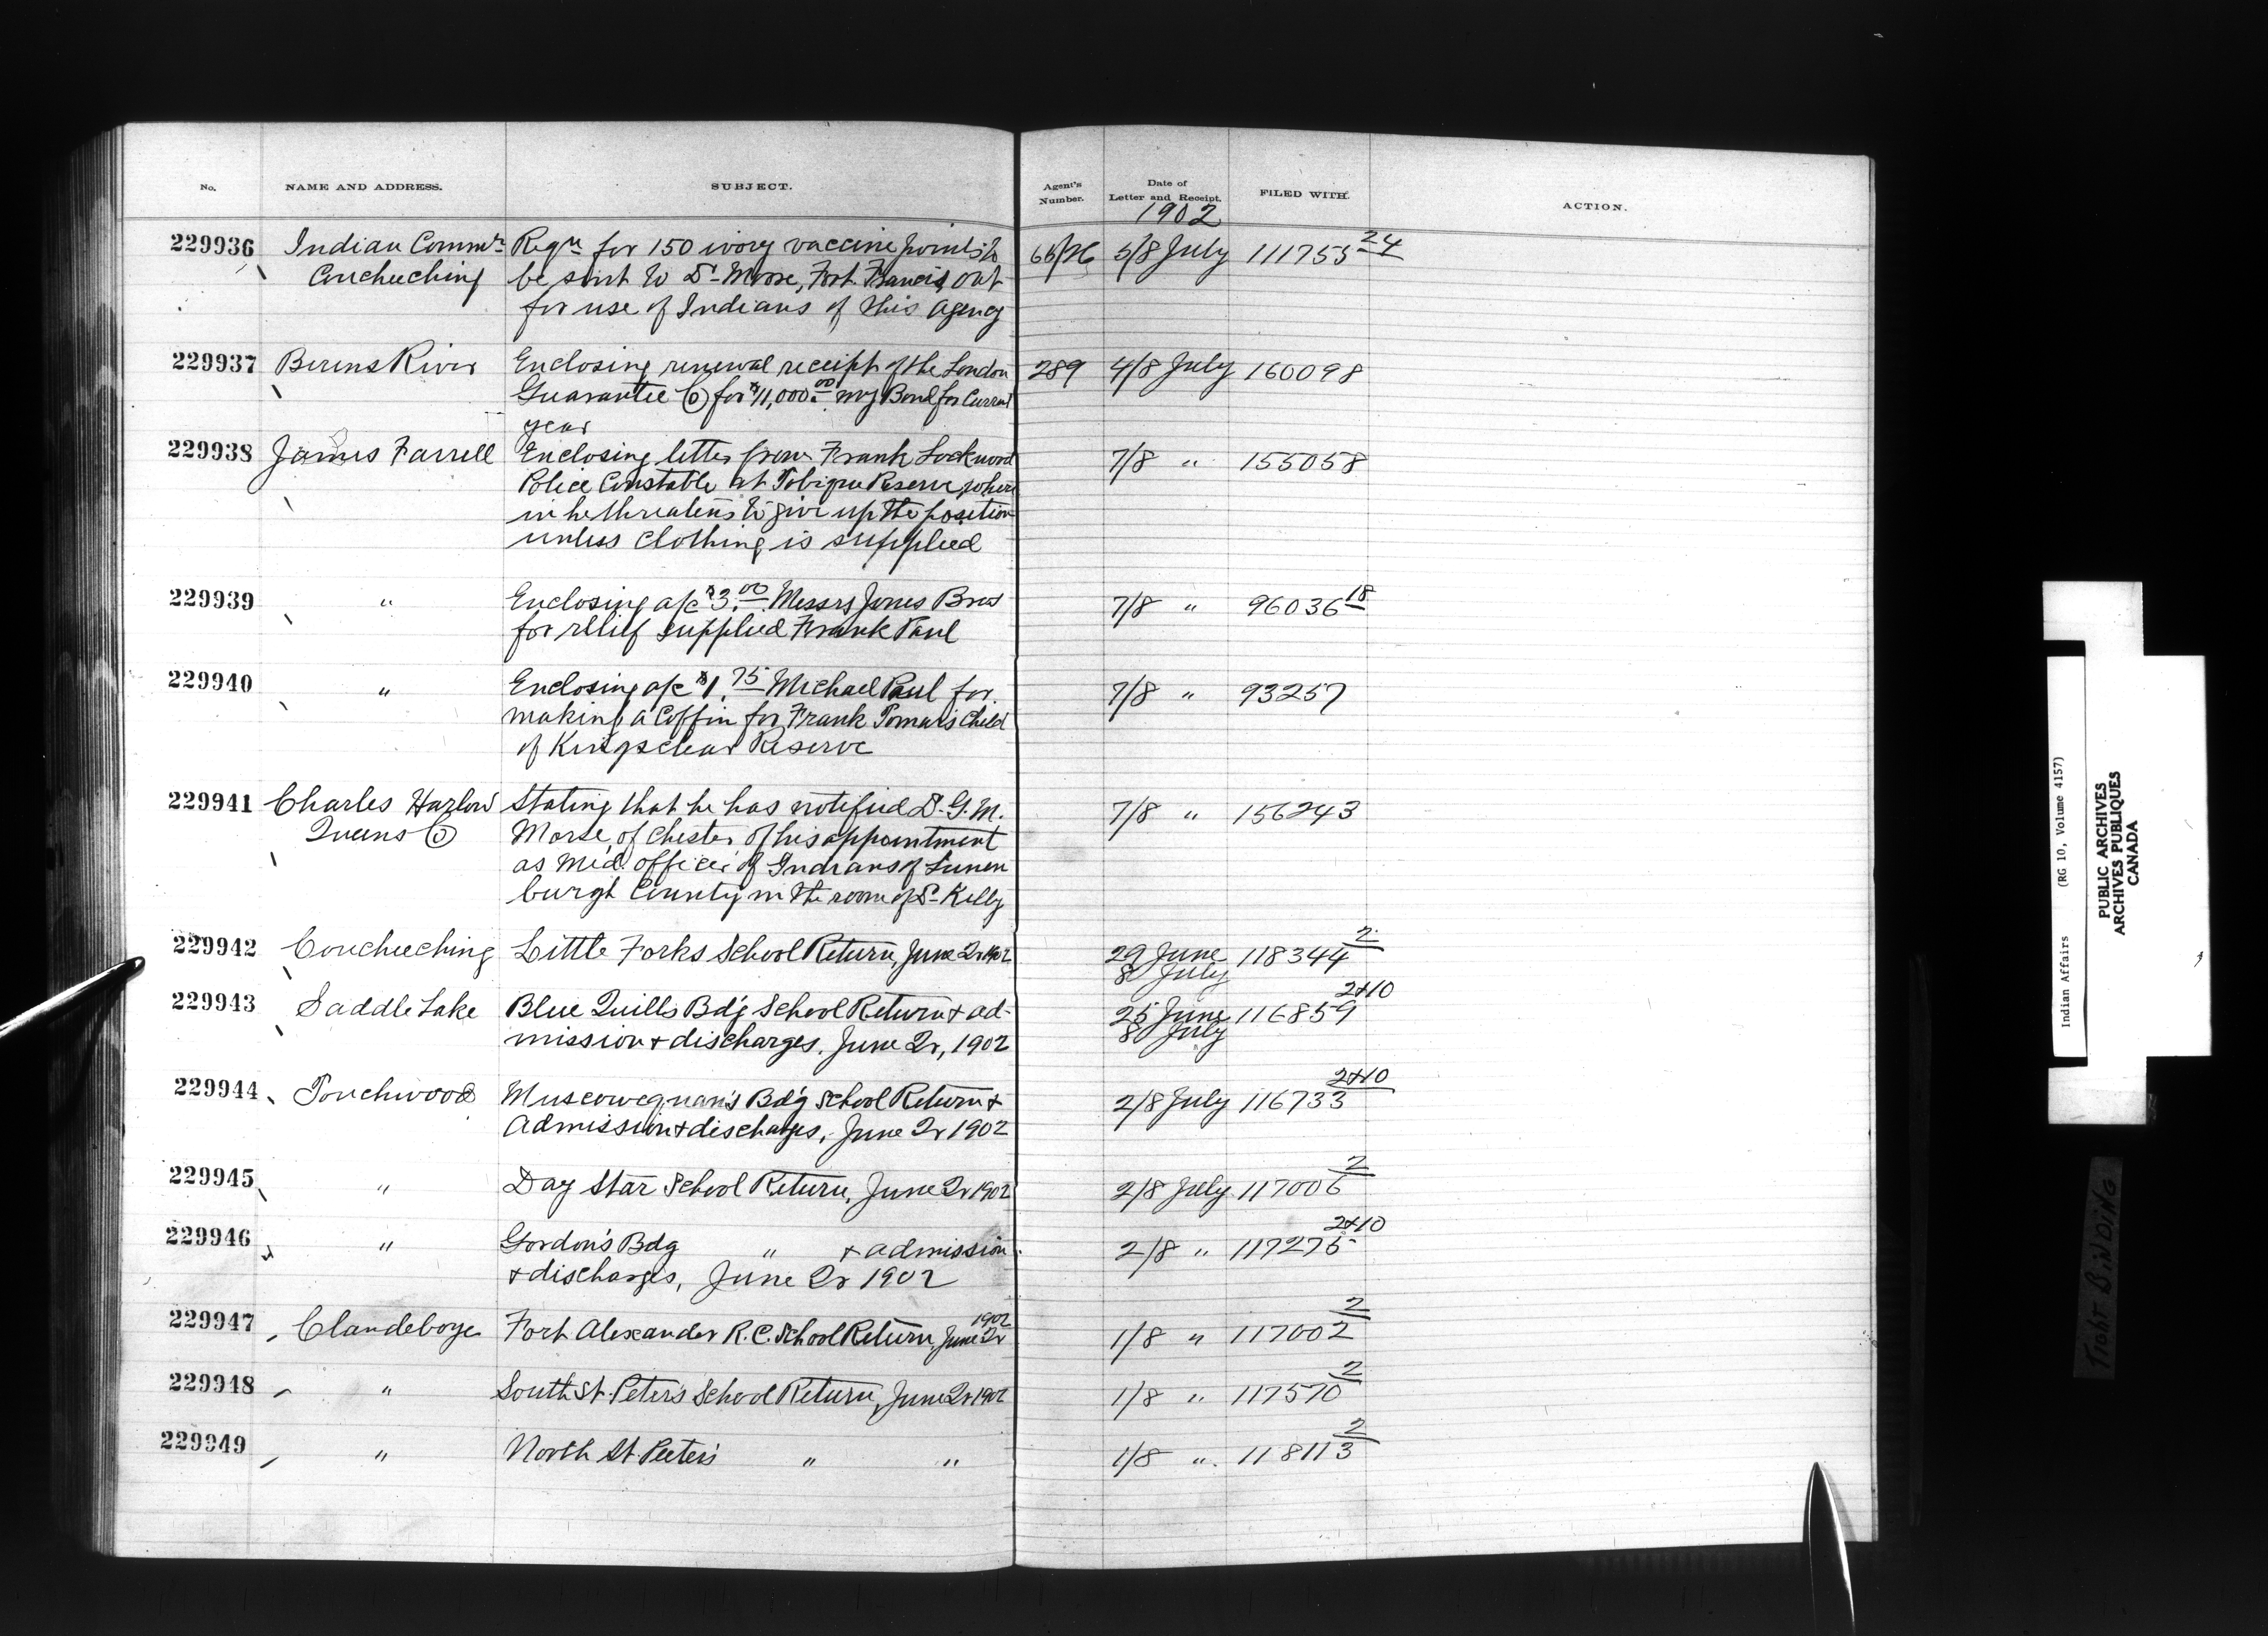 No. NAME AND ADDRESS. SUBJECT. Agent's Number. Date of Letter and Receipt. FILED WITH. ACTION.
1902
229936 Indian Commr Reqn for 150 ivory vaccine points to 5/8 July 111755 24
Couchuching be sent to Dr Moore, Fort Francis, Ont
for use of Indians of this Agency
229937 Berens River Enclosing renewal receipt of the London 289 4/8 July 160098
Guarantee Co for $11,000.00 my Bond for Current
year
229938 James Farrell Enclosing letter from Frank Lockwood 7/8 " 155058
Police Constable at Tobique Reserve, where
in he threatens to give up the position
unless clothing is supplied
229939 " Enclosing a/c $3.00 Messrs Jones Bros 7/8 " 96036 18
for relief supplied Frank Paul
229940 " Enclosing a/c $1.75 Michael Paul for 7/8 " 93257
making a Coffin for Frank Tomer's Child
of Kingsclear Reserve
229941 Charles Harlow Stating that he has notified Dr. G. M. 7/8 " 156243
Queens Co Morse of Chester of his appointment
as Med. officer of Indians of Lunen
burgh County in the room of Dr Kelly
229942 Couchuching Little Forks School Return, June Qr 1902 29 June 118344 2
8 July
229943 Saddle Lake Blue Quills Bd'g School Return & ad- 25 June 116859 2+10
mission & discharges. June Qr, 1902 8 July
229944 Touchwood Muscowequan's Bd'g School Return & 2/8 July 116733 2+10
Admission & discharges, June Qr 1902
229945 " Day Star School Return, June Qr 1902 2/8 July 117006 2
229946 " Gordon's Bdg " & admission 2/8 " 117275 2+10
& discharges, June Qr 1902
229947 Clandeboye Fort Alexander R.C. School Return, June Qr 1902 1/8 " 117002 2
229948 " South St. Peter's School Return, June Qr 1902 1/8 " 117570 2
229949 " North St. Peter's " " 1/8 " 118113 2
Indian Affairs (RG 10, Volume 4157)
PUBLIC ARCHIVES
ARCHIVES PUBLIQUES
CANADA
TIGHT BINDING